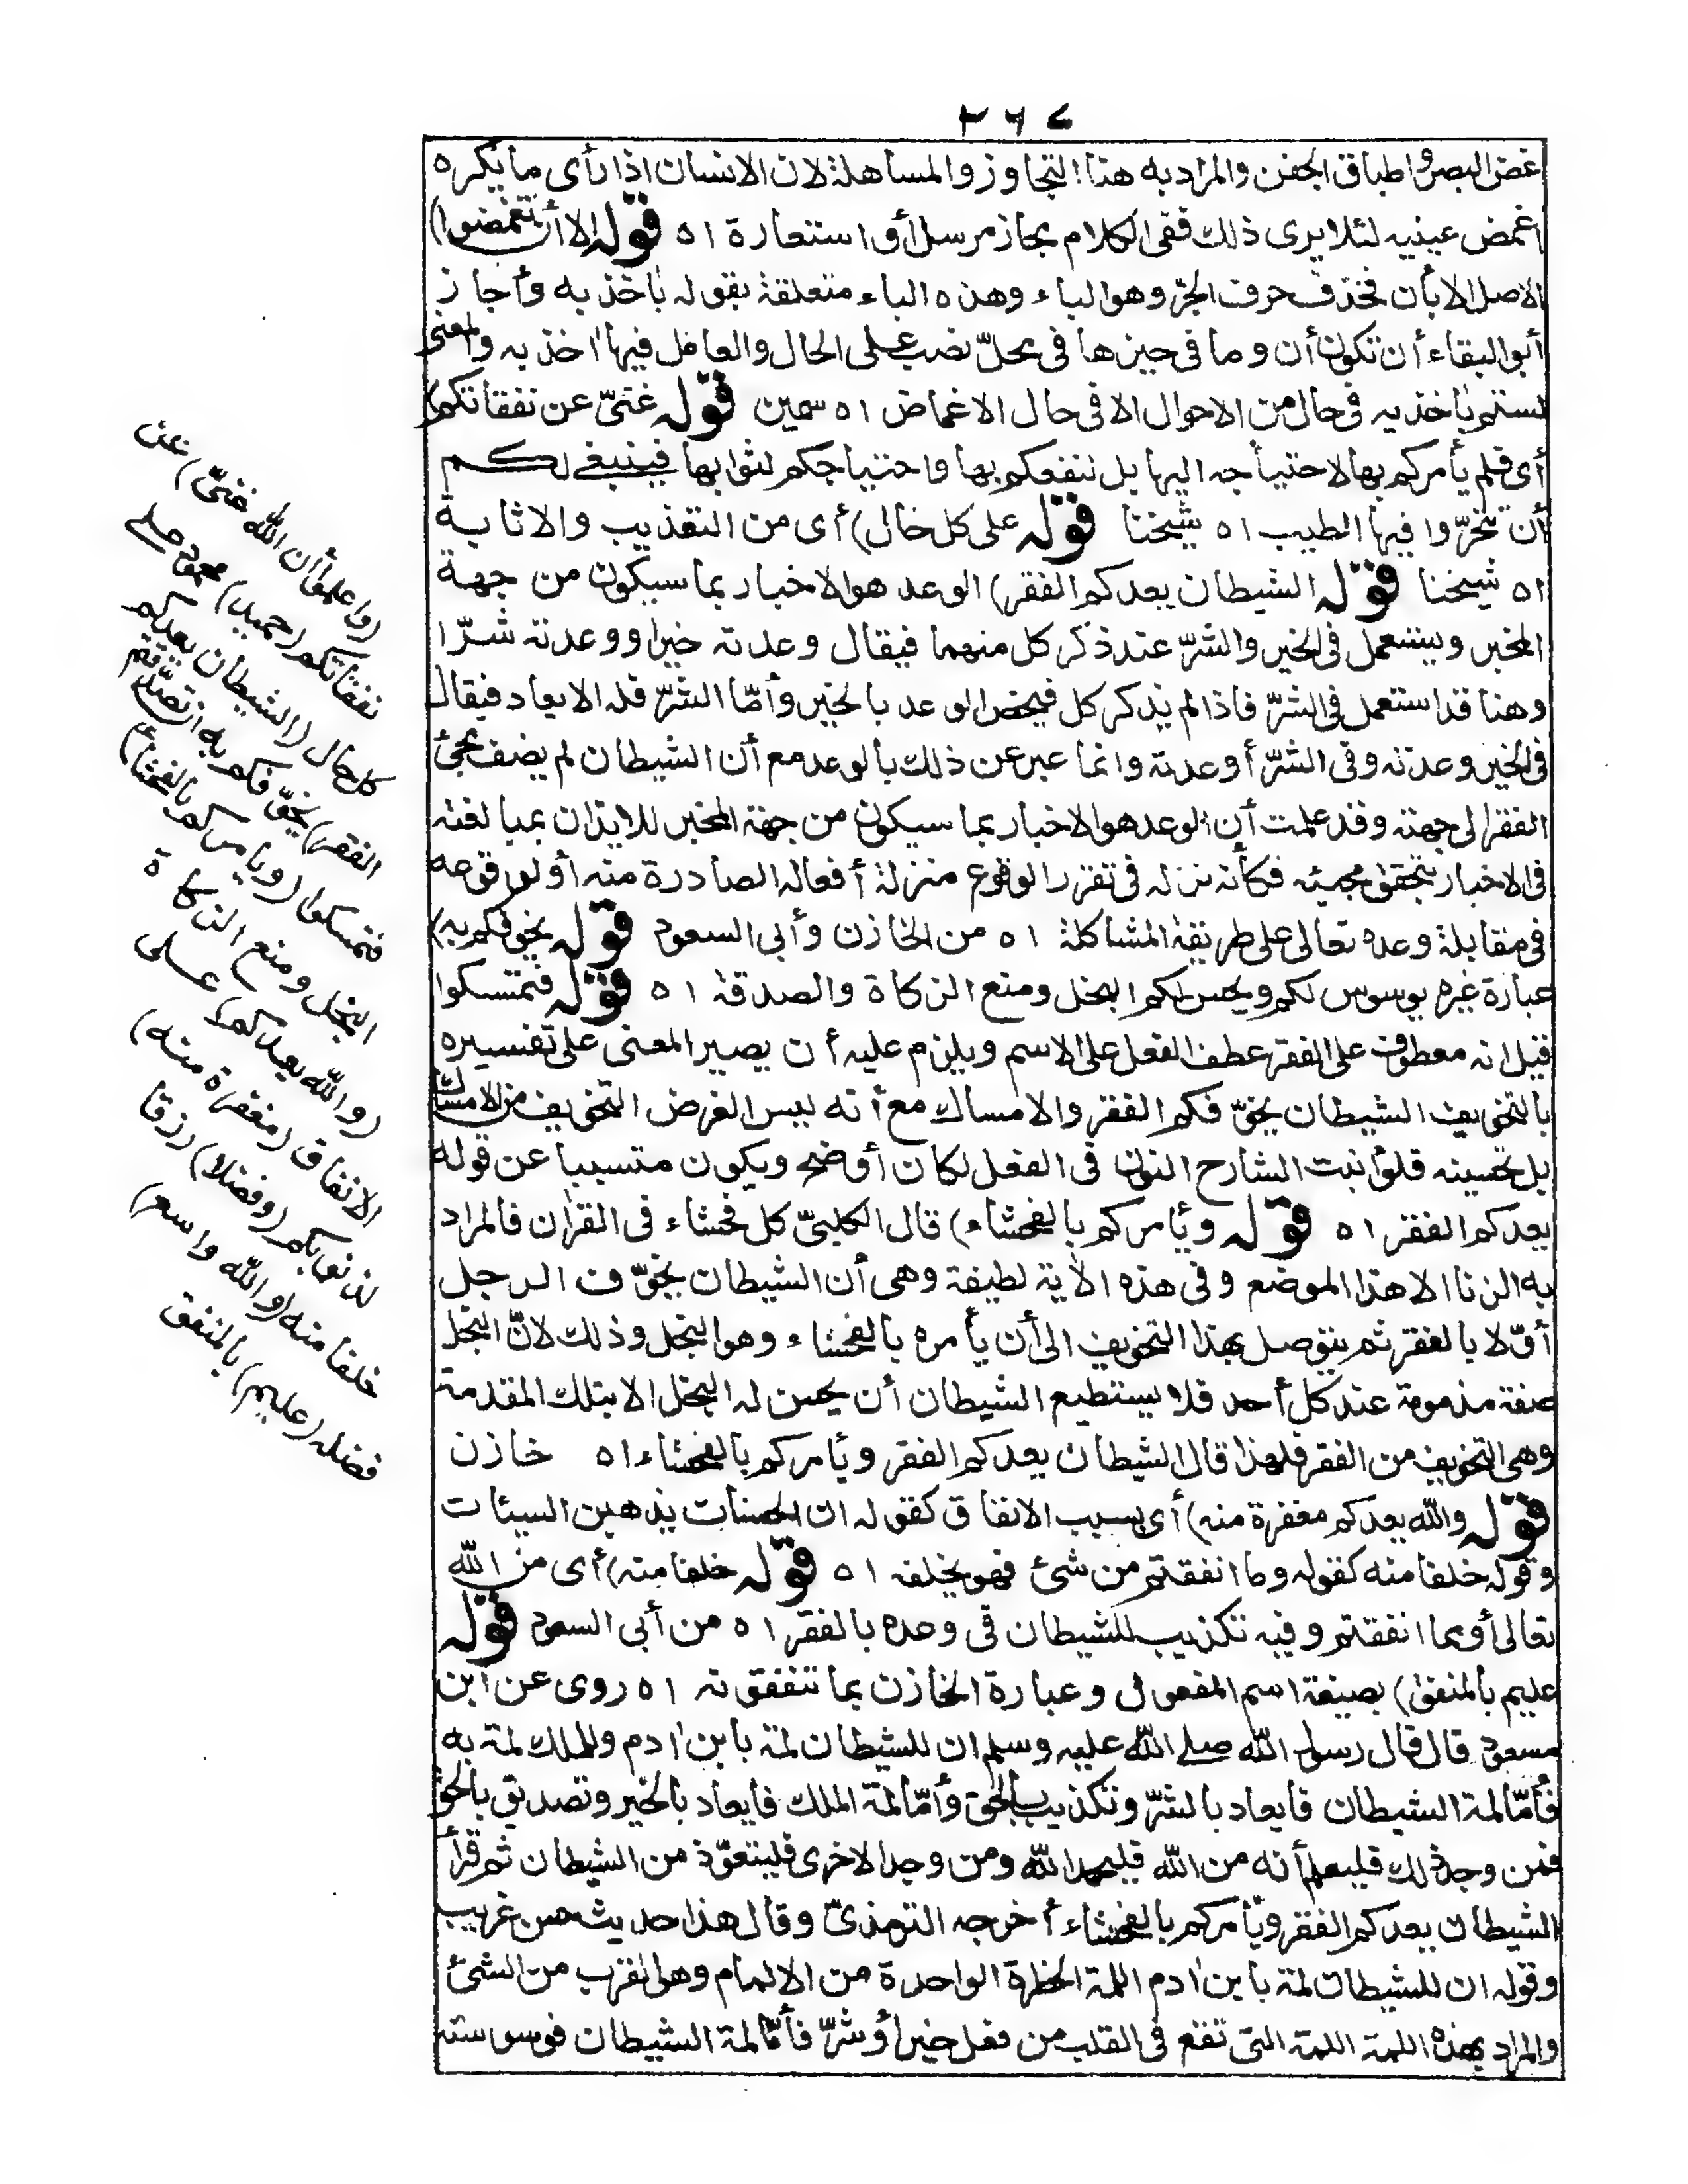 ٢٦٧
غض البصر واطباق الجفن والمراد به هنا التجاوز والمساهلة لان الانسان اذا رأى ما يكره
أغمض عينيه لئلا يرى ذلك ففى الكلام مجاز مرسل أو استعارة اه قوله الا أن تغمضوا)
الاصل الا بأن فحذف حرف الجرّ وهو الباء وهذه الباء متعلقة بقوله بآخذيه وأجاز
أبو البقاء أن تكون أن وما فى حيزها فى محلّ نصب على الحال والعامل فيها آخذيه والمعنى
لستم بآخذيه فى حال من الاحوال الا فى حال الاغماض اه سمين قوله غنىّ عن نفقاتكم)
أى فلم يأمركم بها لاحتياجه اليها بل لنفعكم بها واحتياجكم لثوابها فينبغى لكم
أن تتحرّوا فيها الطيب اه شيخنا قوله على كل حال) أى من التعذيب والاثابة
اه شيخنا قوله الشيطان يعدكم الفقر) الوعد هو الاخبار بما سيكون من جهة
المخبر ويستعمل فى الخير والشرّ عند ذكر كل منهما فيقال وعدته خيرا ووعدته شرّا
وهنا قد استعمل فى الشرّ فاذا لم يذكر كل فيخص الوعد بالخير وأمّا الشرّ فله الايعاد فيقال
فى الخير وعدته وفى الشرّ أوعدته وانما عبر عن ذلك بالوعد مع أن الشيطان لم يضف مجئ
الفقر الى جهته وقد علمت أن الوعد هو الاخبار بما سيكون من جهة المخبر للايذان بمبالغته
فى الاخبار بتحقق مجيئه فكأنه نزله فى تقرر الوقوع منزلة أفعاله الصادرة منه أو لوقوعه
فى مقابلة وعده تعالى على طريقة المشاكلة اه من الخازن وأبى السعود قوله يخوّفكم به)
عبارة غيره يوسوس لكم ويحسن لكم البخل ومنع الزكاة والصدقة اه قوله فتمسكوا
قيل انه معطوف على الفقر عطف الفعل على الاسم ويلزم عليه أن يصير المعنى على تفسيره
بالتخويف الشيطان يخوّفكم الفقر والامساك مع أنه ليس الغرض التخويف من الامساك
بل تحسينه فلو أثبت الشارح النون فى الفعل لكان أوضح ويكون متسببا عن قوله
يعدكم الفقر اه قوله ويأمركم بالفحشاء) قال الكلبىّ كل فحشاء فى القرآن فالمراد
به الزنا الا هذا الموضع وفى هذه الآية لطيفة وهى أن الشيطان يخوّف الرجل
أوّلا بالفقر ثم يتوصل بهذا التخويف الى أن يأمره بالفحشاء وهو البخل وذلك لانّ البخل
صفة مذمومة عند كل أحد فلا يستطيع الشيطان أن يحسن له البخل الا بتلك المقدمة
وهى التخويف من الفقر فلهذا قال الشيطان يعدكم الفقر ويأمركم بالفحشاء اه خازن
قوله والله يعدكم مغفرة منه) أى بسبب الانفاق كقوله ان الحسنات يذهبن السيئات
وقوله خلفا منه كقوله وما انفقتم من شئ فهو يخلفه اه قوله خلفا منه) أى من الله
تعالى أو مما انفقتم وفيه تكذيب للشيطان فى وعده بالفقر اه من أبى السعود قوله
عليم بالمنفق) بصيغة اسم المفعول وعبارة الخازن بما تنفقونه اه روى عن ابن
مسعود قال قال رسول الله صلى الله عليه وسلم ان للشيطان لمة بابن آدم وللملك لمة به
فأمّا لمة الشيطان فايعاد بالشرّ وتكذيب بالحق وأمّا لمة الملك فايعاد بالخير وتصديق بالحق
فمن وجد ذلك فليعلم أنه من الله فليحمد الله ومن وجد الاخرى فليتعوّذ من الشيطان ثم قرأ
الشيطان يعدكم الفقر ويأمركم بالفحشاء أخرجه الترمذىّ وقال هذا حديث حسن غريب
وقوله ان للشيطان لمة بابن آدم اللمة الخطرة الواحدة من الالمام وهو القرب من الشئ
والمراد بهذه اللمة اللمة التى تقع فى القلب من فعل خير أو شرّ فأمّا لمة الشيطان فوسوسته
(واعلموا أن الله غنىّ) عن
نفقاتكم (حميد) محمود على
كل حال (الشيطان يعدكم
الفقر) يخوّفكم به ان تصدّقتم
فتمسكوا (ويأمركم بالفحشاء)
البخل ومنع الزكاة
(والله يعدكم) على
الانفاق (مغفرة منه)
لذنوبكم (وفضلا) رزقا
خلفا منه (والله واسع)
فضله (عليم) بالمنفق